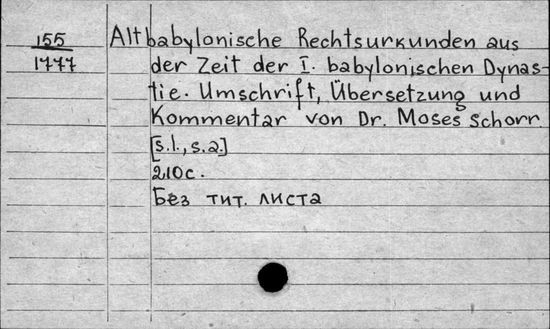 155 Altbabylonische Rechtsurkunden aus
1777 der Zeit der I. babylonischen Dynas-
tie. Umschrift, Übersetzung und
Kommentar von Dr. Moses Schorr.
[s.l., s.a.]
210 с.
Без тит. листа